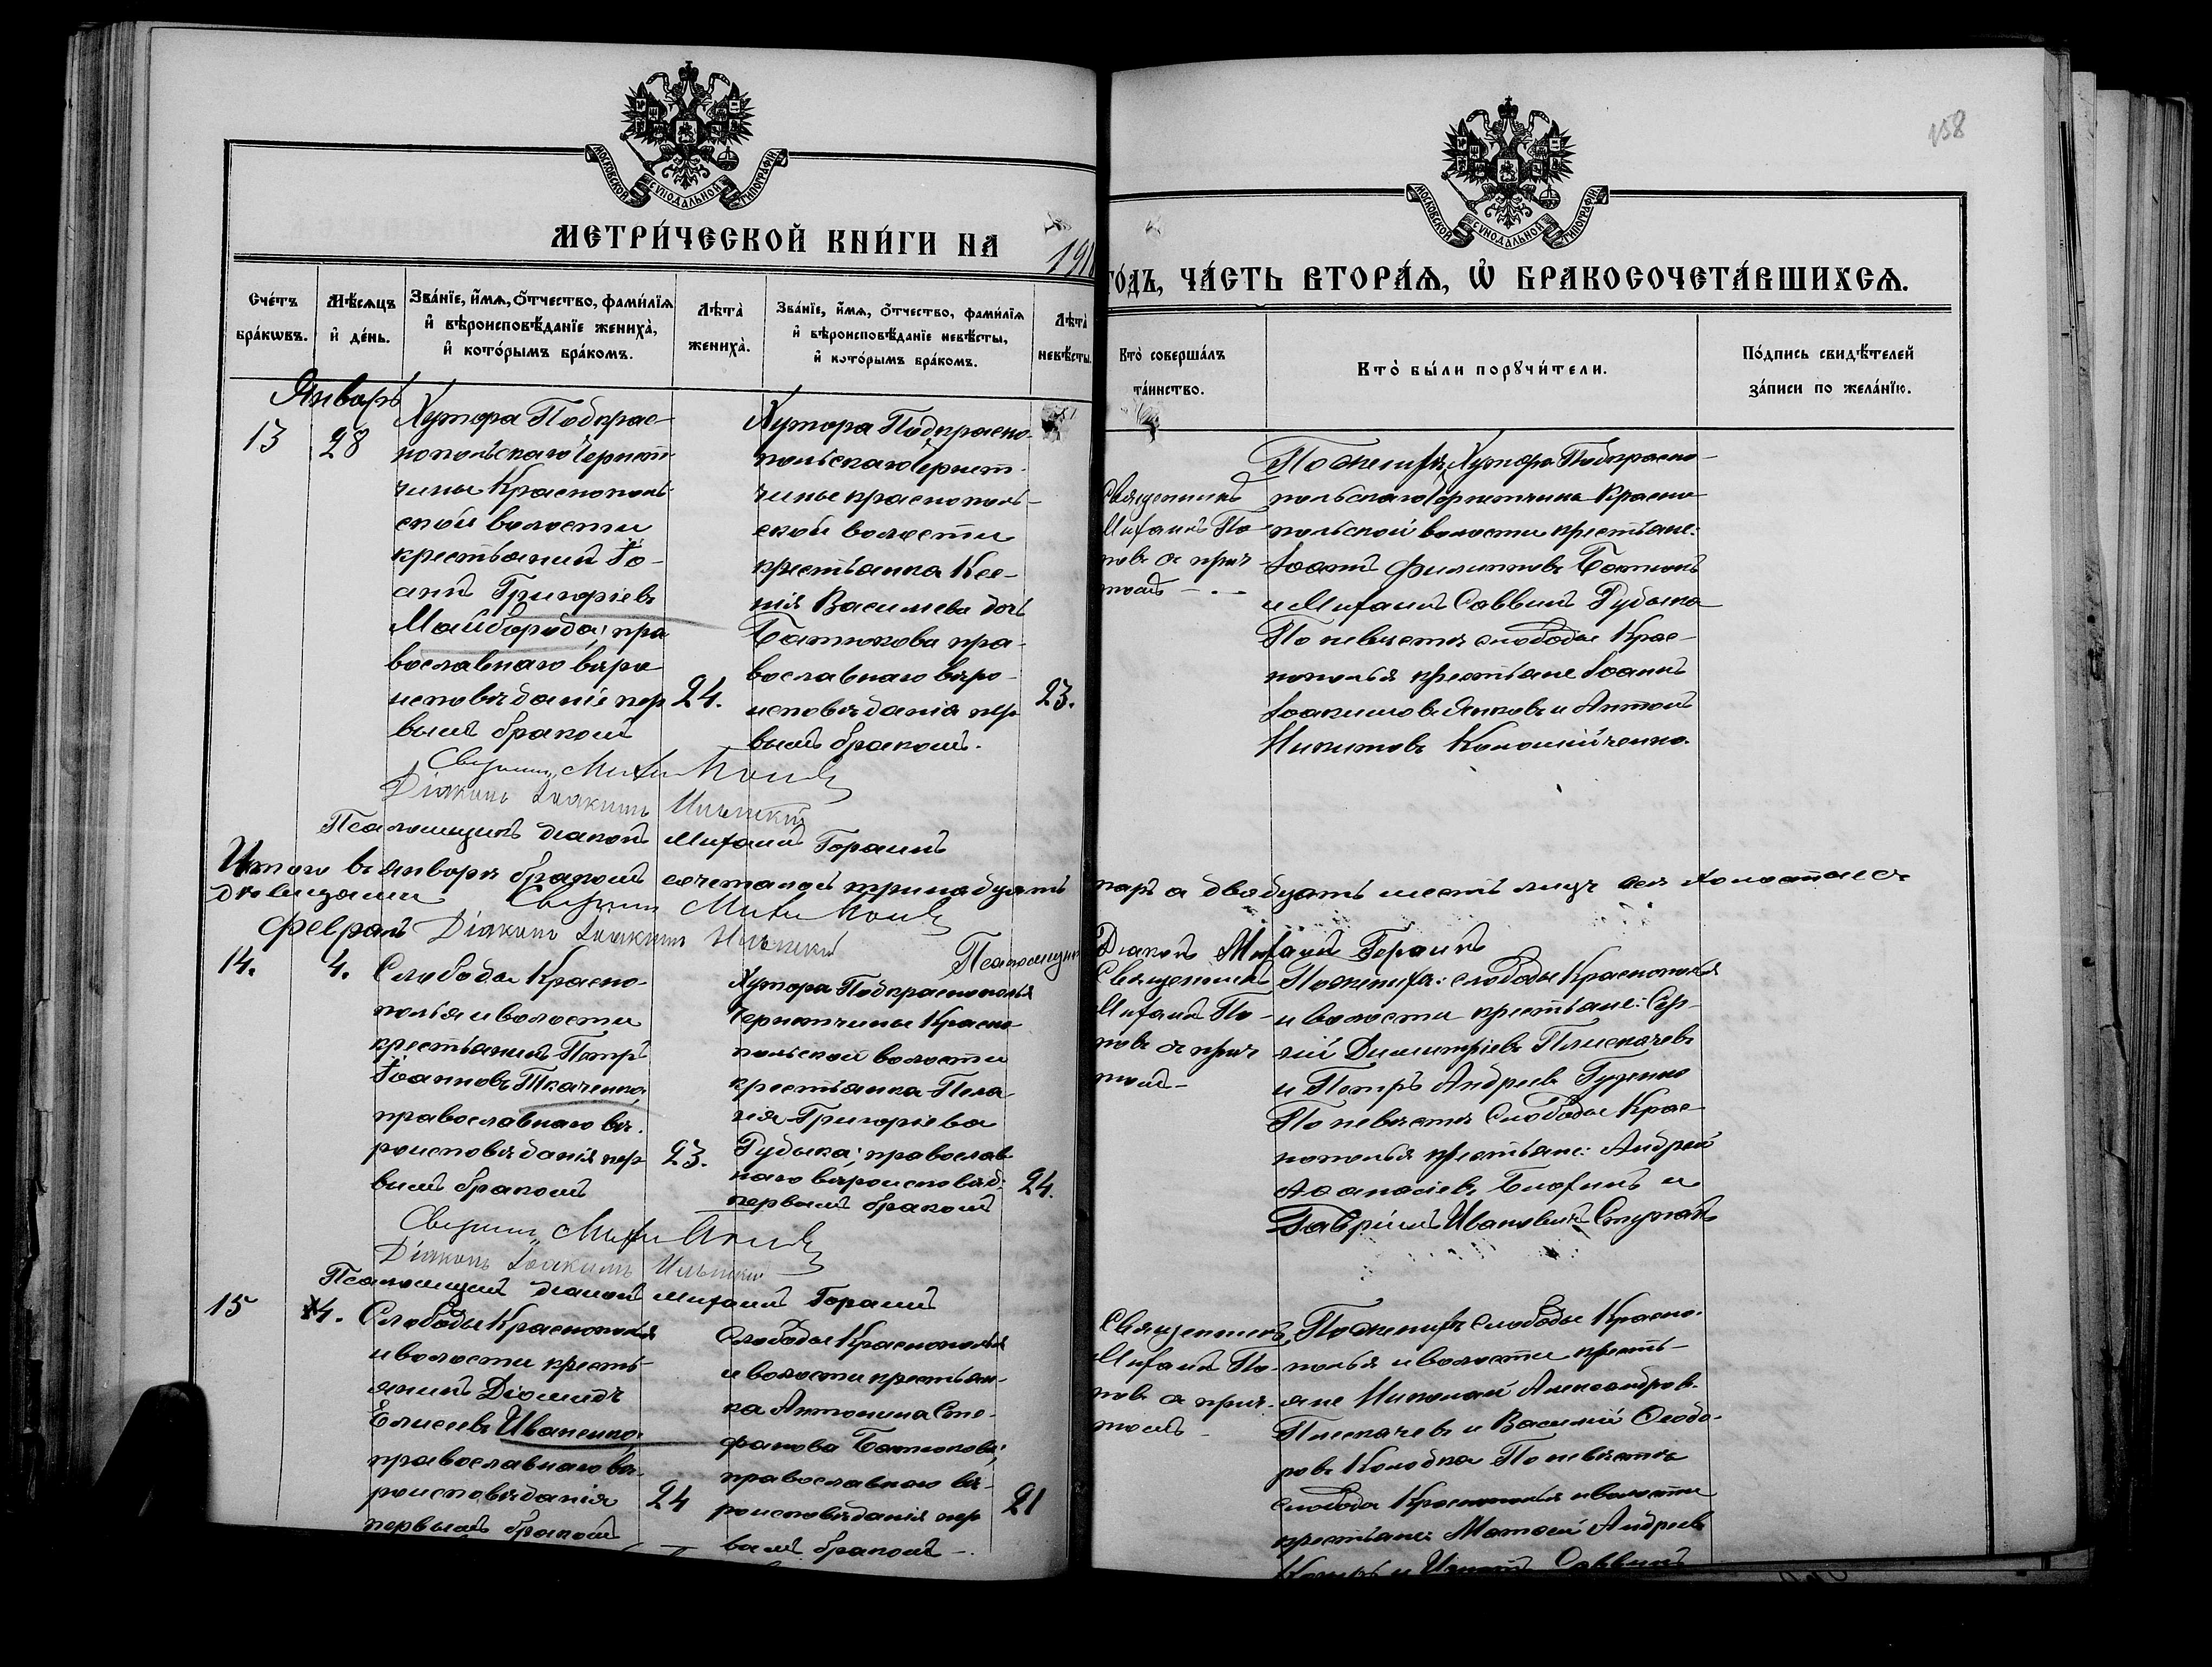 158
МОСКОВСКОЙ СѴНОДАЛЬНОЙ ТИПОГРАФІИ
МОСКОВСКОЙ СѴНОДАЛЬНОЙ ТИПОГРАФІИ
МЕТРИ́ЧЕСКОЙ КНИ́ГИ НА 191
ГО́ДЪ, ЧА́СТЬ ВТОРА́Я, Ѡ БРАКОСОЧЕТА́ВШИХСѦ.
Сче́тъ бра́кѡвъ.
Мѣ́сѧцъ и҆ де́нь.
Зва́нїе, и҆́мѧ, ѻ҆́тчество, фами́лїѧ
и҆ вѣроисповѣ́данїе жениха̀,
и҆ кото́рымъ бра́комъ.
Лѣ̑та̀ жениха̀.
Зва́нїе, и҆́мѧ, ѻ҆́тчество, фами́лїѧ
и҆ вѣроисповѣ́данїе невѣ́сты,
и҆ кото́рымъ бра́комъ.
Лѣ̑та̀ невѣ́сты.
Кто̀ соверша́лъ
та́инство.
Кто̀ бы́ли порꙋчи́тели.
По́дпись свидѣ́телей
за́писи по жела́нїю.
Январь
13
28
Хутора Подкрас-
нопольскаго Чернет-
чины Краснополь-
ской волости
крестьянинъ Іо-
аннъ Григоріевъ
Майборода; пра
вославнаго вѣро
исповѣданіе пер
вымъ бракомъ
24.
Хутора Подкрасно-
польскаго Чернет-
чины краснополь-
ской волости
крестьянка Ксе-
нія Васильева дочь
Батюкова пра-
вославнаго вѣро-
исповѣданія пер
вымъ бракомъ.
23.
Священникъ
Михаилъ По-
повъ съ прич
томъ
По женихѣ, Хутора Подкрасно-
польскаго Чернетчина Красно
польской волости крестьяне:
Іоаннъ Филипповъ Батюкъ
и Михаилъ Саввинъ Рудыка
По невѣстѣ слободы Крас-
нополья крестьяне Іоаннъ
Іоакимовъ Янковъ и Антонъ
Никитовъ Коломійченко.
Священ. Михаилъ Поповъ
Діаконъ Іоакимъ Ильинскій
Псаломщикъ діаконъ Михаилъ Гораинъ
Итого въ январѣ бракомъ сочеталось тринадцать паръ а двадцать шесть лицъ всѣ холостые съ
дѣвицами Священ. Михаилъ Поповъ
Февраль Діаконъ Іоакимъ Ильинскій Псаломщикъ Діаконъ Михаилъ Гораинъ
14.
4.
Слободы Красно-
полья и волости
крестьянинъ Петръ
Іоанновъ Ткаченко,
православнаго вѣ-
роисповѣданія пер
вымъ бракомъ
23.
Хутора Подкраснополья
Чернетчины Красно-
польской волости
крестьянка Пела-
гія Григоріева
Рудыка; православ
наго вѣроисповѣд:
первымъ бракомъ
24.
Священникъ
Михаилъ По-
повъ съ прич
томъ-
По женихѣ: слободы Краснополья
и волости крестьяне: Сер-
гій Димитріевъ Плискачевъ
и Петръ Андреевъ Гузенко
По невѣстѣ Слободы Крас-
нополья крестьяне: Андрей
Аѳанасіевъ и
Гавріилъ Ивановичъ
Священ. Михаилъ Поповъ
Діаконъ Іоакимъ Ильинскій
Псаломщикъ діаконъ Михаилъ Гораинъ
15
4.
Слободы Краснополья
и волости кресть-
янинъ Діомидъ
Елисеевъ Иваненко;
православнаго вѣ-
роисповѣданія
первымъ бракомъ
24
Слободы Краснополья
и волости крестьян-
ка Антонина Сте-
фанова Батюкова;
православнаго вѣ-
роисповѣданія пер
вымъ бракомъ-.
21
Священникъ
Михаилъ По-
повъ съ прич-
томъ
По женихѣ Слободы Красно-
полья и волости кресть-
яне Николай Александров.
Плискачевъ и Василій Ѳеодо-
ровъ Колодка По невѣстѣ
слобода Краснополья и волости
крестьяне: Матѳей Андреевъ
и Игнатъ Саввинъ